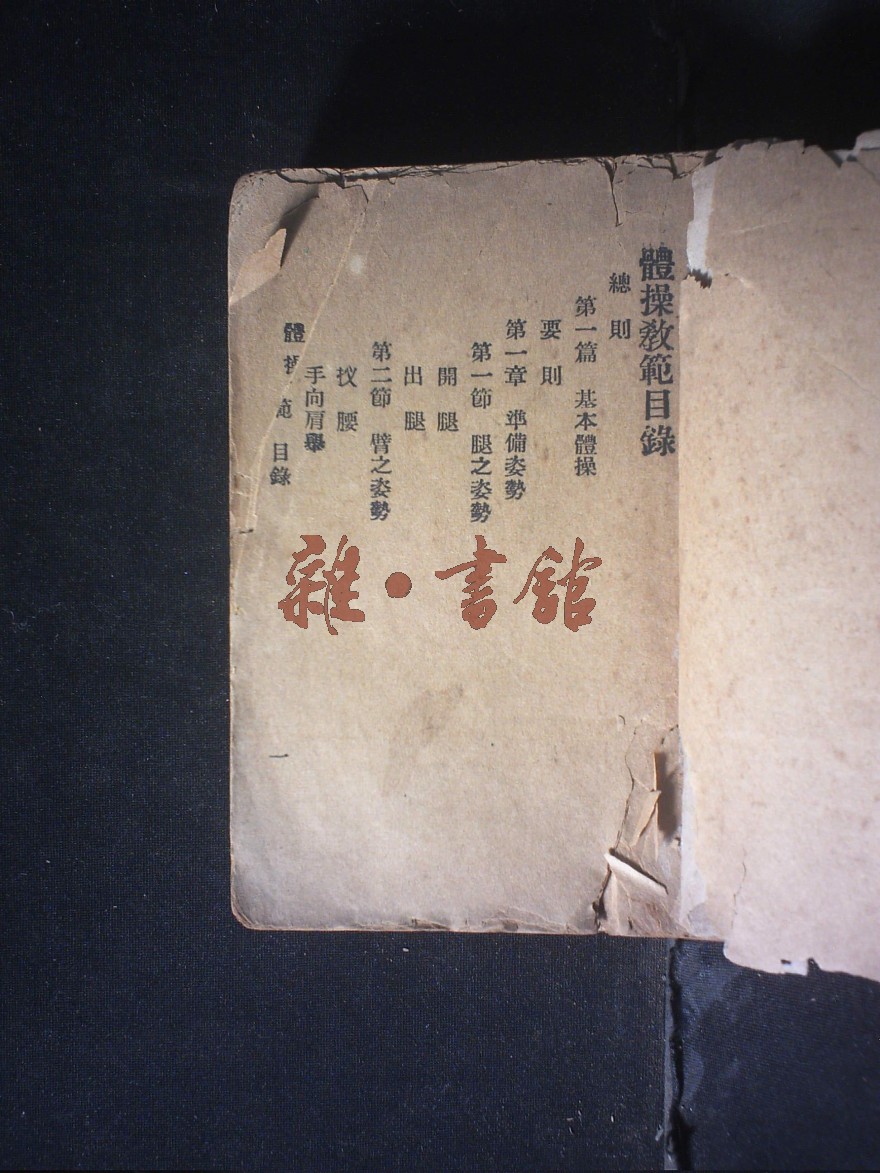 體操教範目錄
總則
第一篇 基本體操
要則
第一章 準備姿勢
第一節 腿之姿勢
開腿
出腿
第二節 臂之姿勢
扠腰
手向肩舉
體操 範 目錄
一
雜·書館